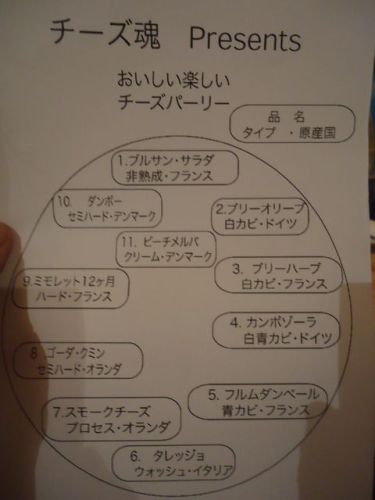 チーズ魂 Presents
おいしい楽しい
チーズパーリー
品 名
タイプ ・原産国
1.ブルサン・サラダ
非熟成・フランス
2.ブリーオリーブ
白カビ・ドイツ
3. ブリーハーブ
白カビ・フランス
4. カンボゾーラ
白青カビ・ドイツ
5. フルムダンベール
青カビ・フランス
6. タレッジョ
ウォッシュ・イタリア
7.スモークチーズ
プロセス・オランダ
8.ゴーダ・クミン
セミハード・オランダ
9.ミモレット12ヶ月
ハード・フランス
10. ダンボー
セミハード・デンマーク
11. ピーチメルバ
クリーム・デンマーク